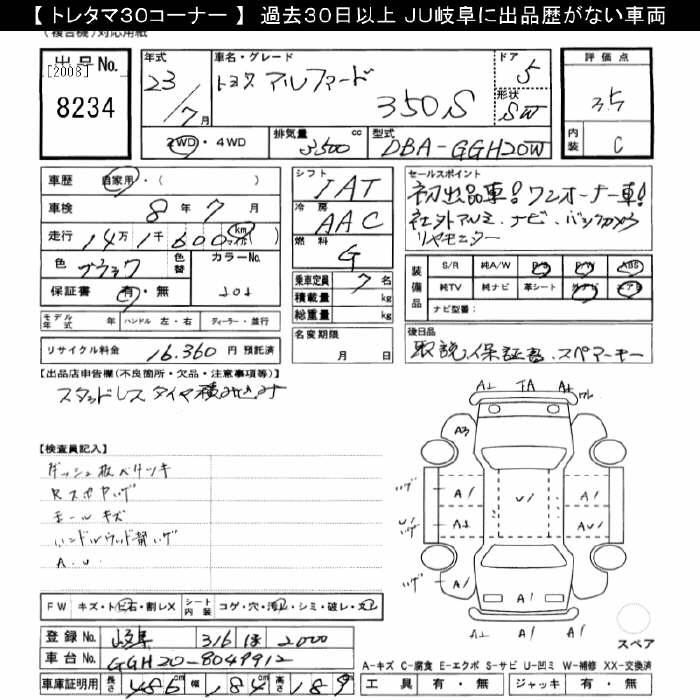 【 トレタマ30コーナー 】 過去30日以上 JU岐阜に出品歴がない車両
(複合機)対応用紙
出品No.
[2008]
8234
年式 23/7月
車名・グレード トヨタ アルファード 350S
ドア 5
形状 SW
評価点 3.5
内装 C
2WD・4WD
排気量 3500 cc
型式 DBA-GGH20W
車歴 自家用・( )
車検 8年7月
走行 14万1千600 km マイル
色 ブラック 色替 カラーNo. 202
保証書 有・無
モデル年式 ハンドル 左・右 ディーラー・並行
リサイクル料金 16,360 円 預託済
シフト IAT
冷房 AAC
燃料 G
乗車定員 7 名
積載量 kg
総重量 kg
名変期限 月 日
セールスポイント
初出品車! ワンオーナー車!
社外アルミ、ナビ、バックカメラ
リヤモニター
装備品 S/R 純A/W P/S P/W ABS
純TV 純ナビ 革シート 外ナビ エアB
ナビ型番:
後日品
取説、保証書、スペアキー
【出品店申告欄(不良箇所・欠品・注意事項等)】
スタッドレスタイヤ積み込み
【検査員記入】
ダッシュ板ベタツキ
Rスポヤレゲ
ホールキズ
ハンドルウッド剥げ
A.U.
FW キズ・トビ石・割レX シート内装 コゲ・穴・汚レ・シミ・破レ・スレ
登録No. 岐阜 316 ほ 2000
車台No. GGH20-8049912
車庫証明用 長さ 486cm 幅 184 高さ 189
A1 TA A1
A3
A1 U1 A1
A1 AU1
A1 A1
A1 A1
スペア
A-キズ C-腐食 E-エクボ S-サビ U-凹ミ W-補修 XX-交換済
工具 有・無 ジャッキ 有・無